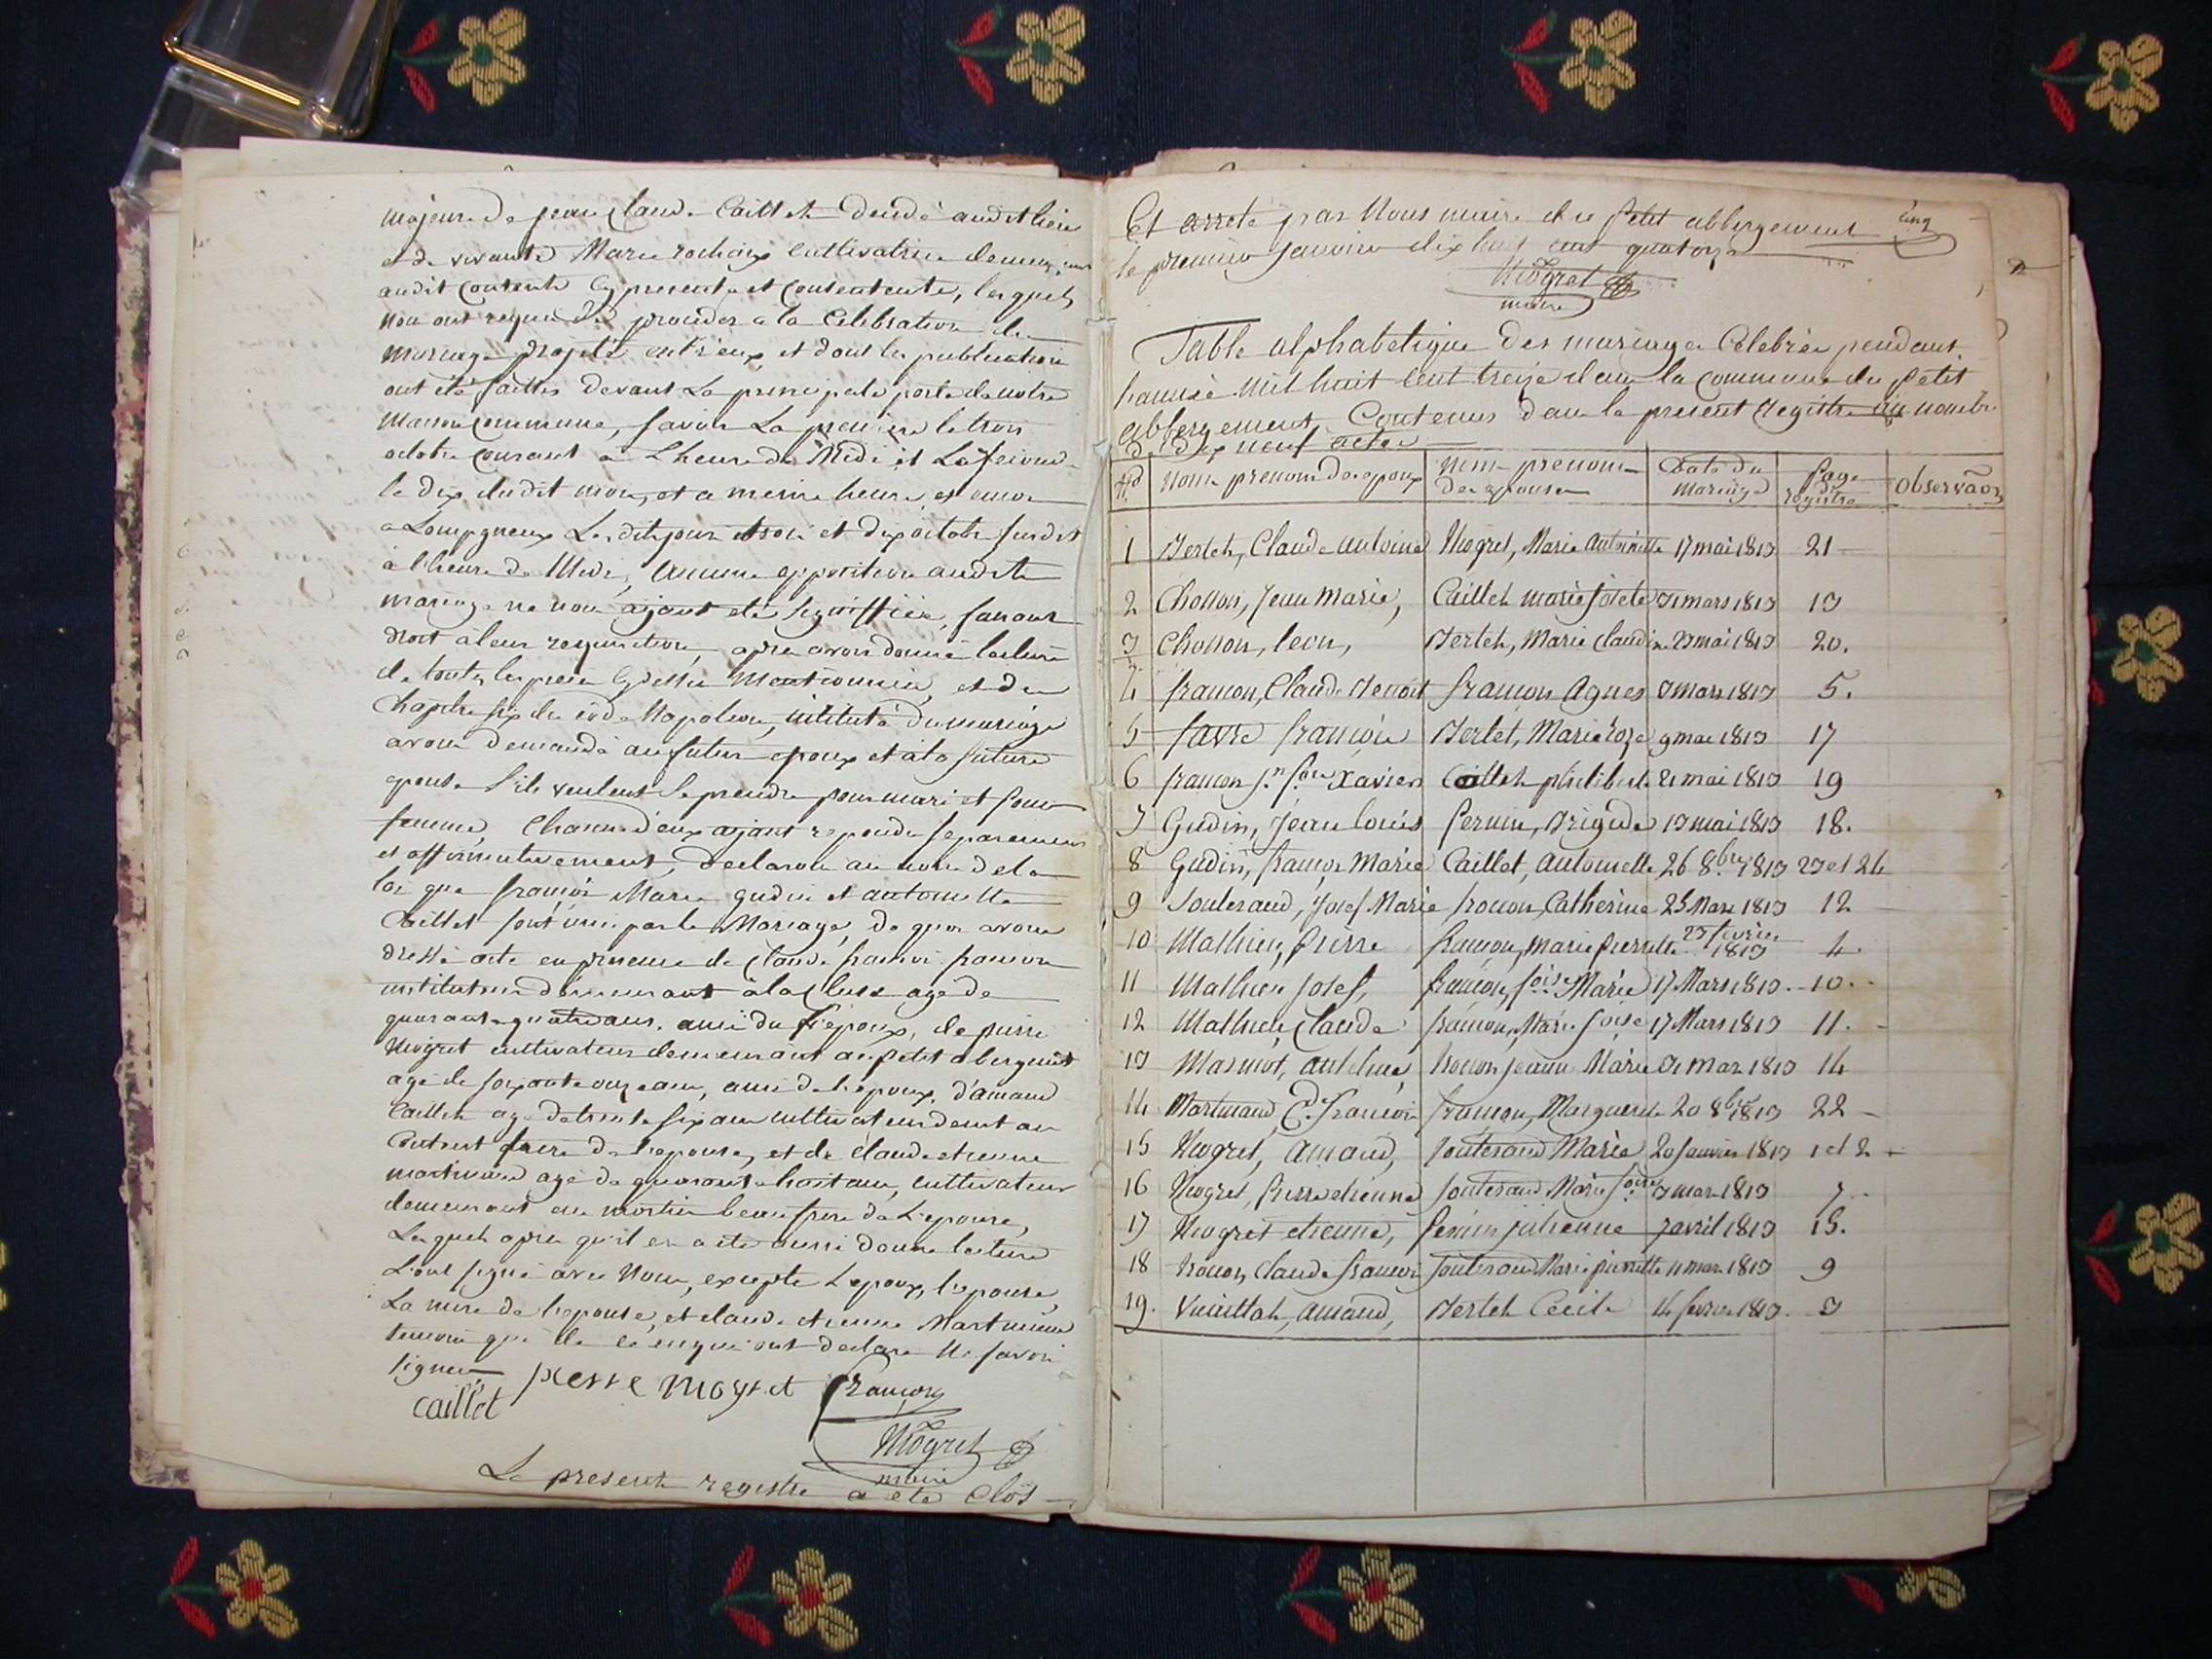 majeure de jean Claude Caillet decedé audit lieu
et de vivante Marie rochaix cultivatrice demeurant
audit contrent cy presente et consentente, lesquels
nou ont requis de proceder a la Celebration du
mariage projetté entr'eux et dont les publication
ont été faittes devant La principale porte de notre
maison commune, savoir La premiere le trois
octobre courant a L'heure de Midi et La seconde
le dix dudit mois, et a meme heure et encor
a Lompgneux Lesdits jour trois et dix octobre susdit
à l'heure de Midi, aucune opposition audit
mariage ne nou ajant eté signiffiée, faisant
droit à leur requisition, apres avoir donné lecture
de toutes les pieces cy dessus mentionnées, et du
Chapitre six du code Napoleon, intitulé du mariage
avons demandé au futur epoux et à la future
epouse s'ils veulent se prendre pour mari et pour
femme, Chacun d'eux ajant repondu separement
et affirmativement, declarons au nom de la
loi que françois Marie gudin et antoinette
Caillet sont unis par le Mariage, de quoi avons
dressé acte en presence de Claude françois françon
instituteur demeurant à la Cluse agé de
quarante quatre ans, ami de l'epoux, de pierre
Mogret cultivateur demeurant au petit abergement
agé de soixante onze ans, ami de l'epoux, d'amand
Caillet agé de trente six ans cultivateur demt au
Contrent frere de l'epouse, et de claude etienne
martinand agé de quarante huit ans, cultivateur
demeurant au beaufrere de L'epouse,
Lesquels apres qu'il en a eté aussi donné lecture
L'ont signé avec Nous, excepté L'epoux, l'epouse,
La mere de l'epouse, et claude etienne Martinand
temoin qui de ce enquis ont declaré ne savoir
signer
caillet pierre mogret françon
Mogret
maire
Le present registre a été Clos
Et arreté par Nous maire du petit abbergement cinq
le premier janvier dix huit cent quatorze
Mogret
maire
Table alphabetique des mariages Celebrés pendant
l'année mil huit cent treize dans la commune du petit
abbergement, Contenus dans le present Registre au nombre
de dix neuf actes
Nos Noms prenoms des epoux Noms prenoms des epouses Date du mariage page du registre Observãons
1 Berlet, Claude antoine Mogret, Marie Antoinette 17 mai 1813 21
2 Chosson, Jean Marie, Caillet marie josete 31 mars 1813 13
3 Chosson, leon, Berlet, Marie Claudine 23 mai 1813 20.
4 françon, Claude Benoit françon Agnes 3 mars 1813 5.
5 favre françois Berlet, Marie roze 9 mai 1813 17
6 françon jn fois Xavier Caillet philiberte 21 mai 1813 19
7 Gudin, Jean louis perrin, Brigide 13 mai 1813 18.
8 Gudin, françois Marie Caillet, antoinette 26 8bre 1813 23 et 24
9 Jouteraud, Josef Marie françon, Catherine 25 Mars 1813 12
10 Mathieu, pierre françon, marie pierrette 23 fevrier 1813 4.
11 Mathieu Josef, françon, foise Marie 17 Mars 1813. 10.
12 Mathieu, Claude françon, Marie foise 17 Mars 1813 11.
13 Masnot, antelme, françon jeanne Marie 31 mars 1813 14
14 Martinand, C. françois françon, Marguerite 20 8bre 1813 22
15 Mogret, Amand, Jouteraud Marie 20 janvier 1813 1 et 2
16 Mogret, pierre etienne Jouteraud Marie foise 3 mars 1813 7.
17 Mogret etienne, perrin julienne 7 avril 1813 15.
18 françon Claude françois Jouteraud Marie pierrette 11 mars 1813 9
19. Vuaillat, amand, Berlet Cecile 14 fevrier 1813. 3